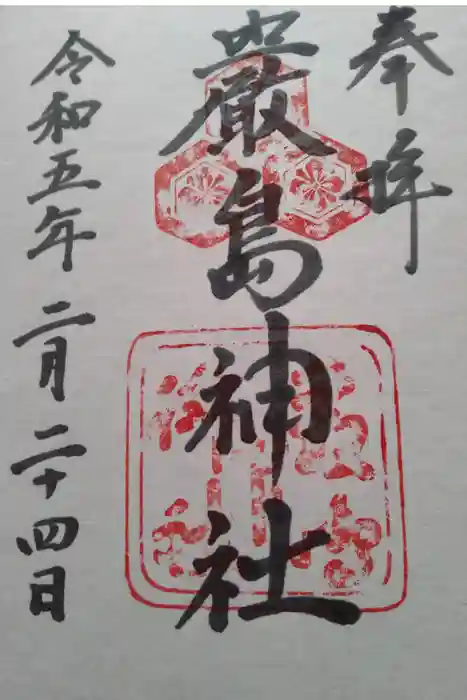 奉拝
厳島神社
令和五年二月二十四日